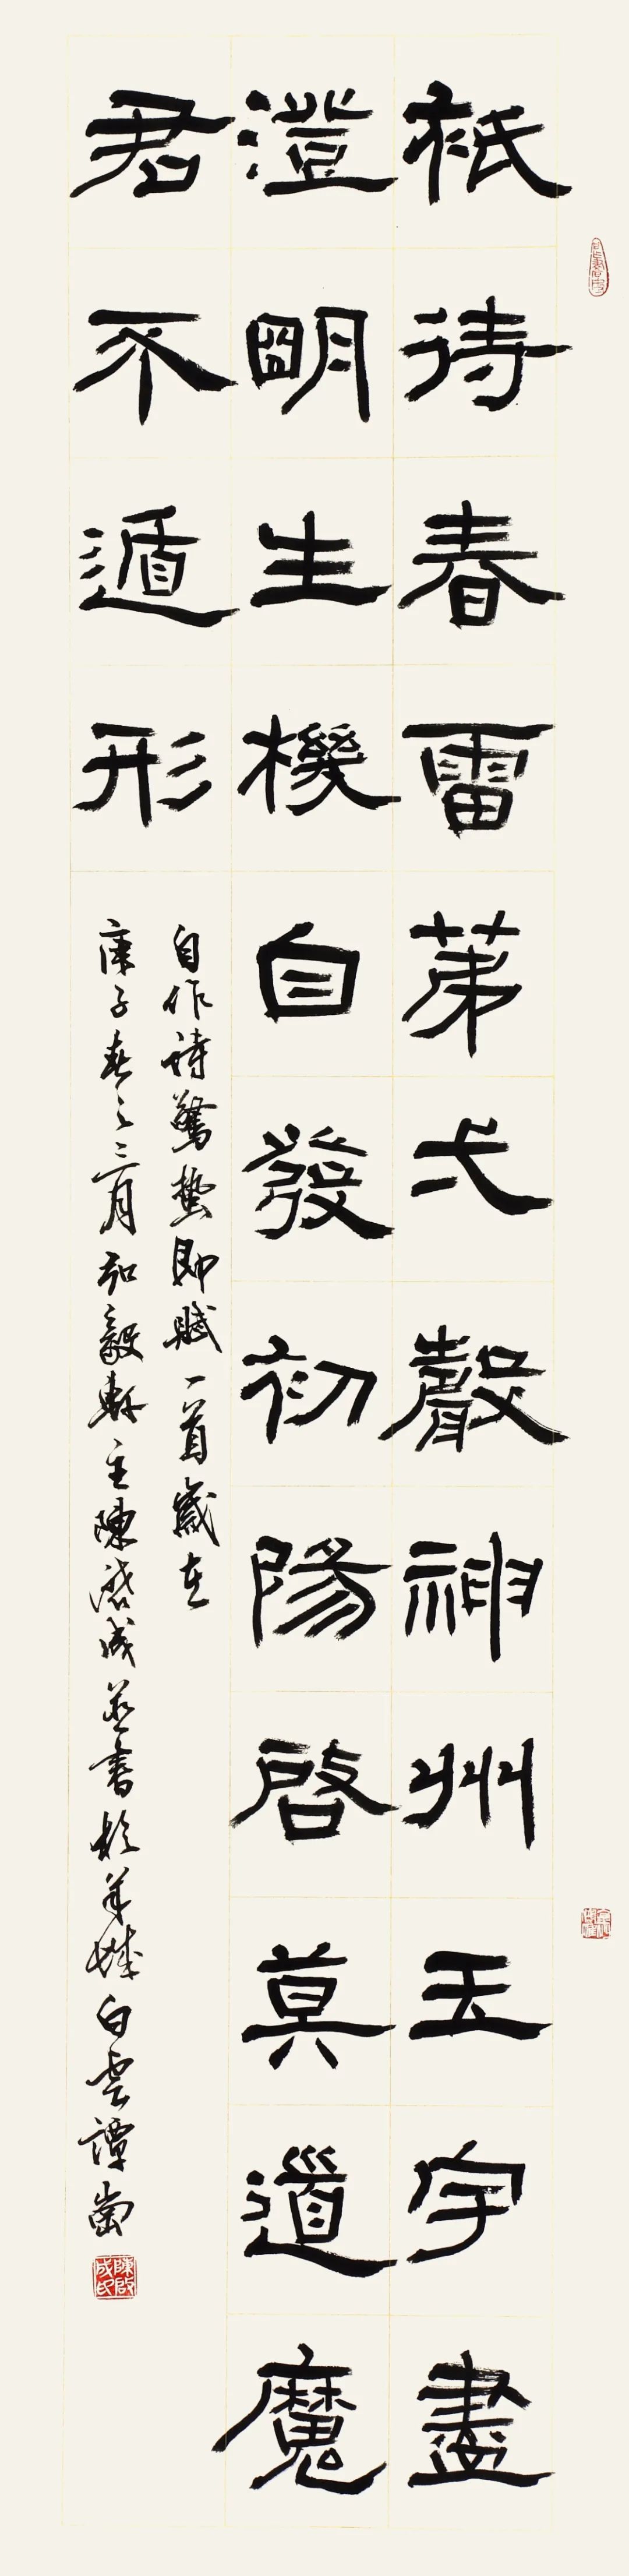 祇待春雷苐弌聲神州玉宇盡
澄明生機自發初陽啓莫道魔
君不遁形
自作詩驚蟄即賦一首歲在
庚子春之三月弘毅軒主陳啓成並書於羊城白雲譚崗
陳啟成印